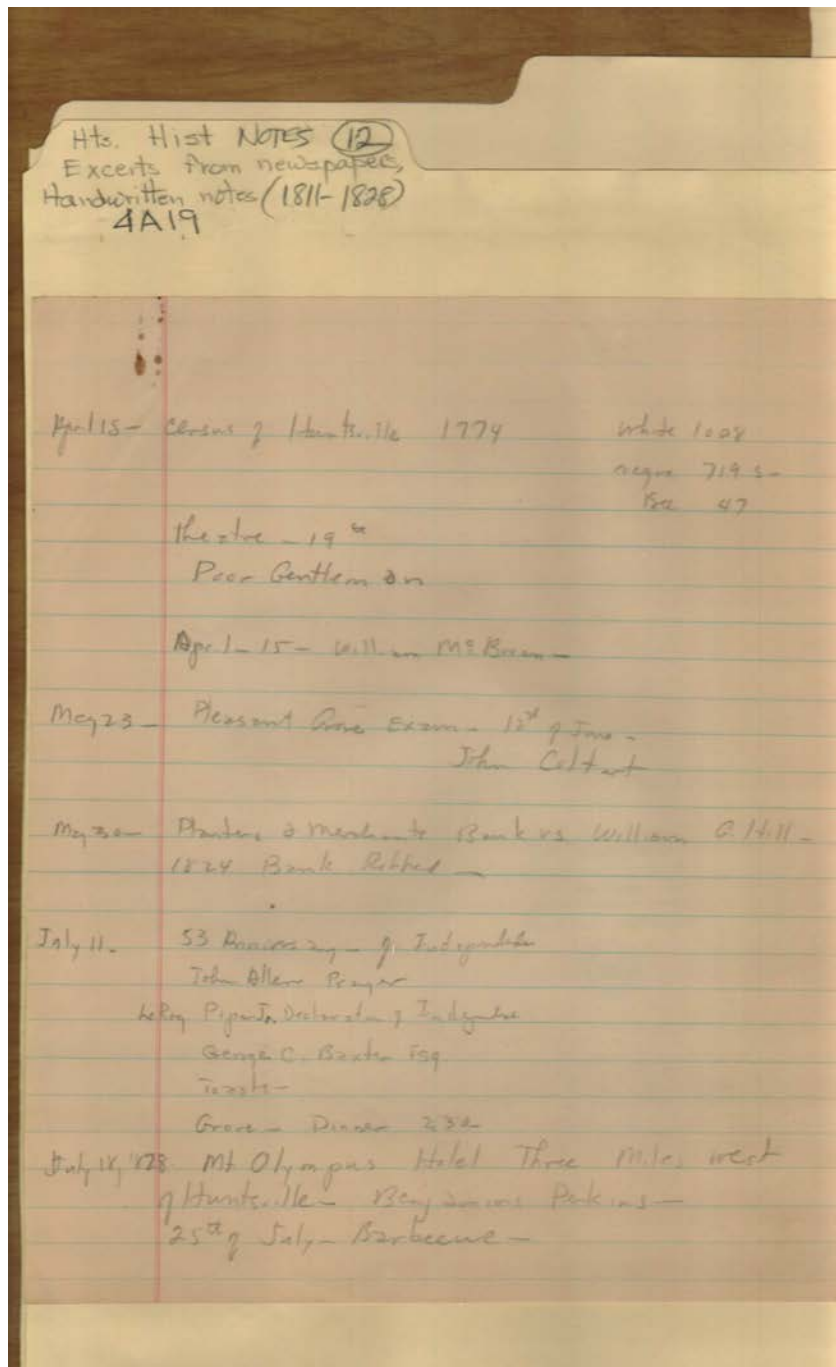 Hts. Hist NOTES 12
Excerts from newspapers,
Handwritten notes (1811-1828)
4A19
April 15- Census of Huntsville 1774 white 1028
negro 719
47
Theatre - 19
Poor Gentleman
April - 15 - William
May 23 - Pleasant Grove Exam - of June -
John Coltart
May Planters & Merchants Bank vs William Hill -
1824 Bank Robbed -
July 11. 53 Anniversary - of Independence
John Allen Prayer
LeRoy Declaration of Independence
George C. Baxter Esq
Toasts -
Grove - Dinner
July 18, 1828. Mt Olympus Hotel Three Miles west
of Huntsville - Benjamin Perkins -
25th of July - Barbecue -